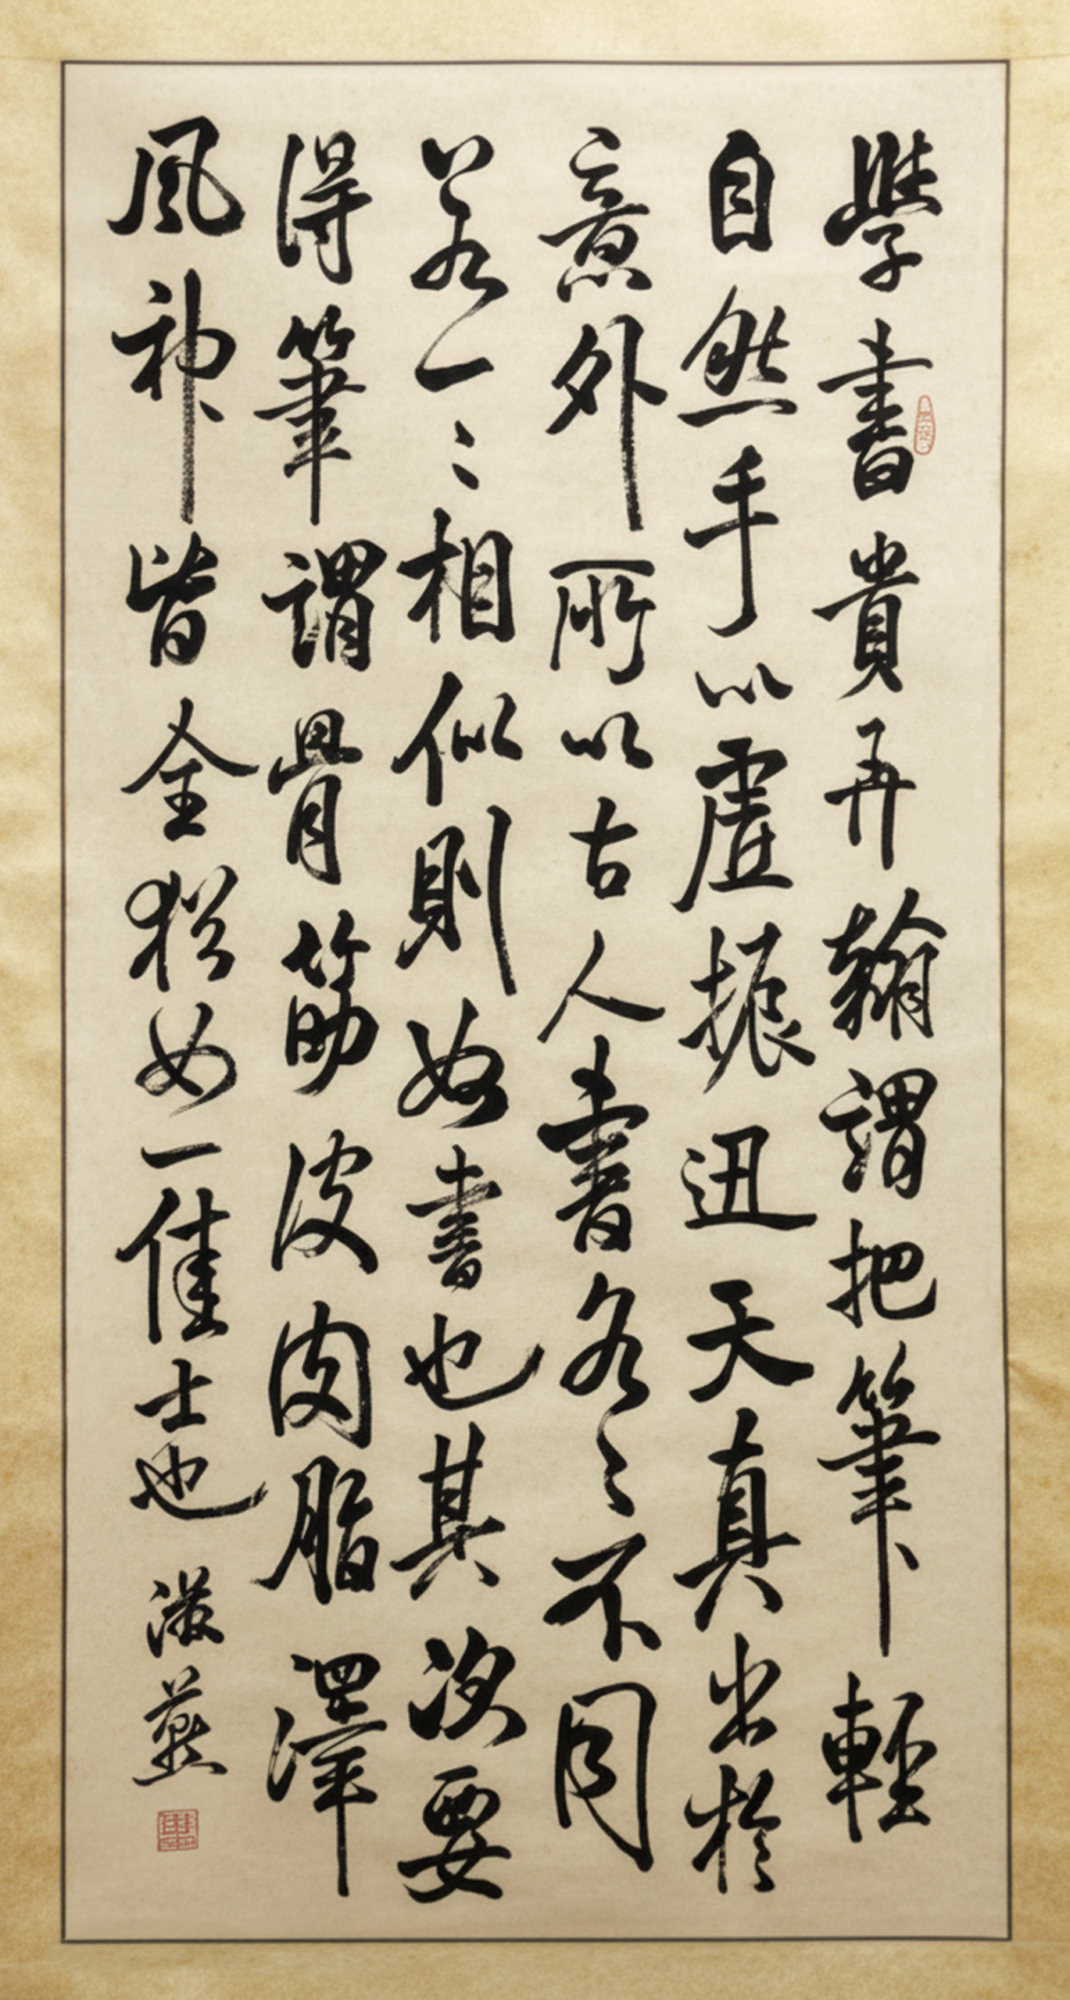 學書貴弄翰謂把筆輕
自然手心虛振迅天真出於
意外所以古人書各〻不同
若一〻相似則奴書也其次要
得筆謂骨筋皮肉脂澤
風神皆全猶如一佳士也